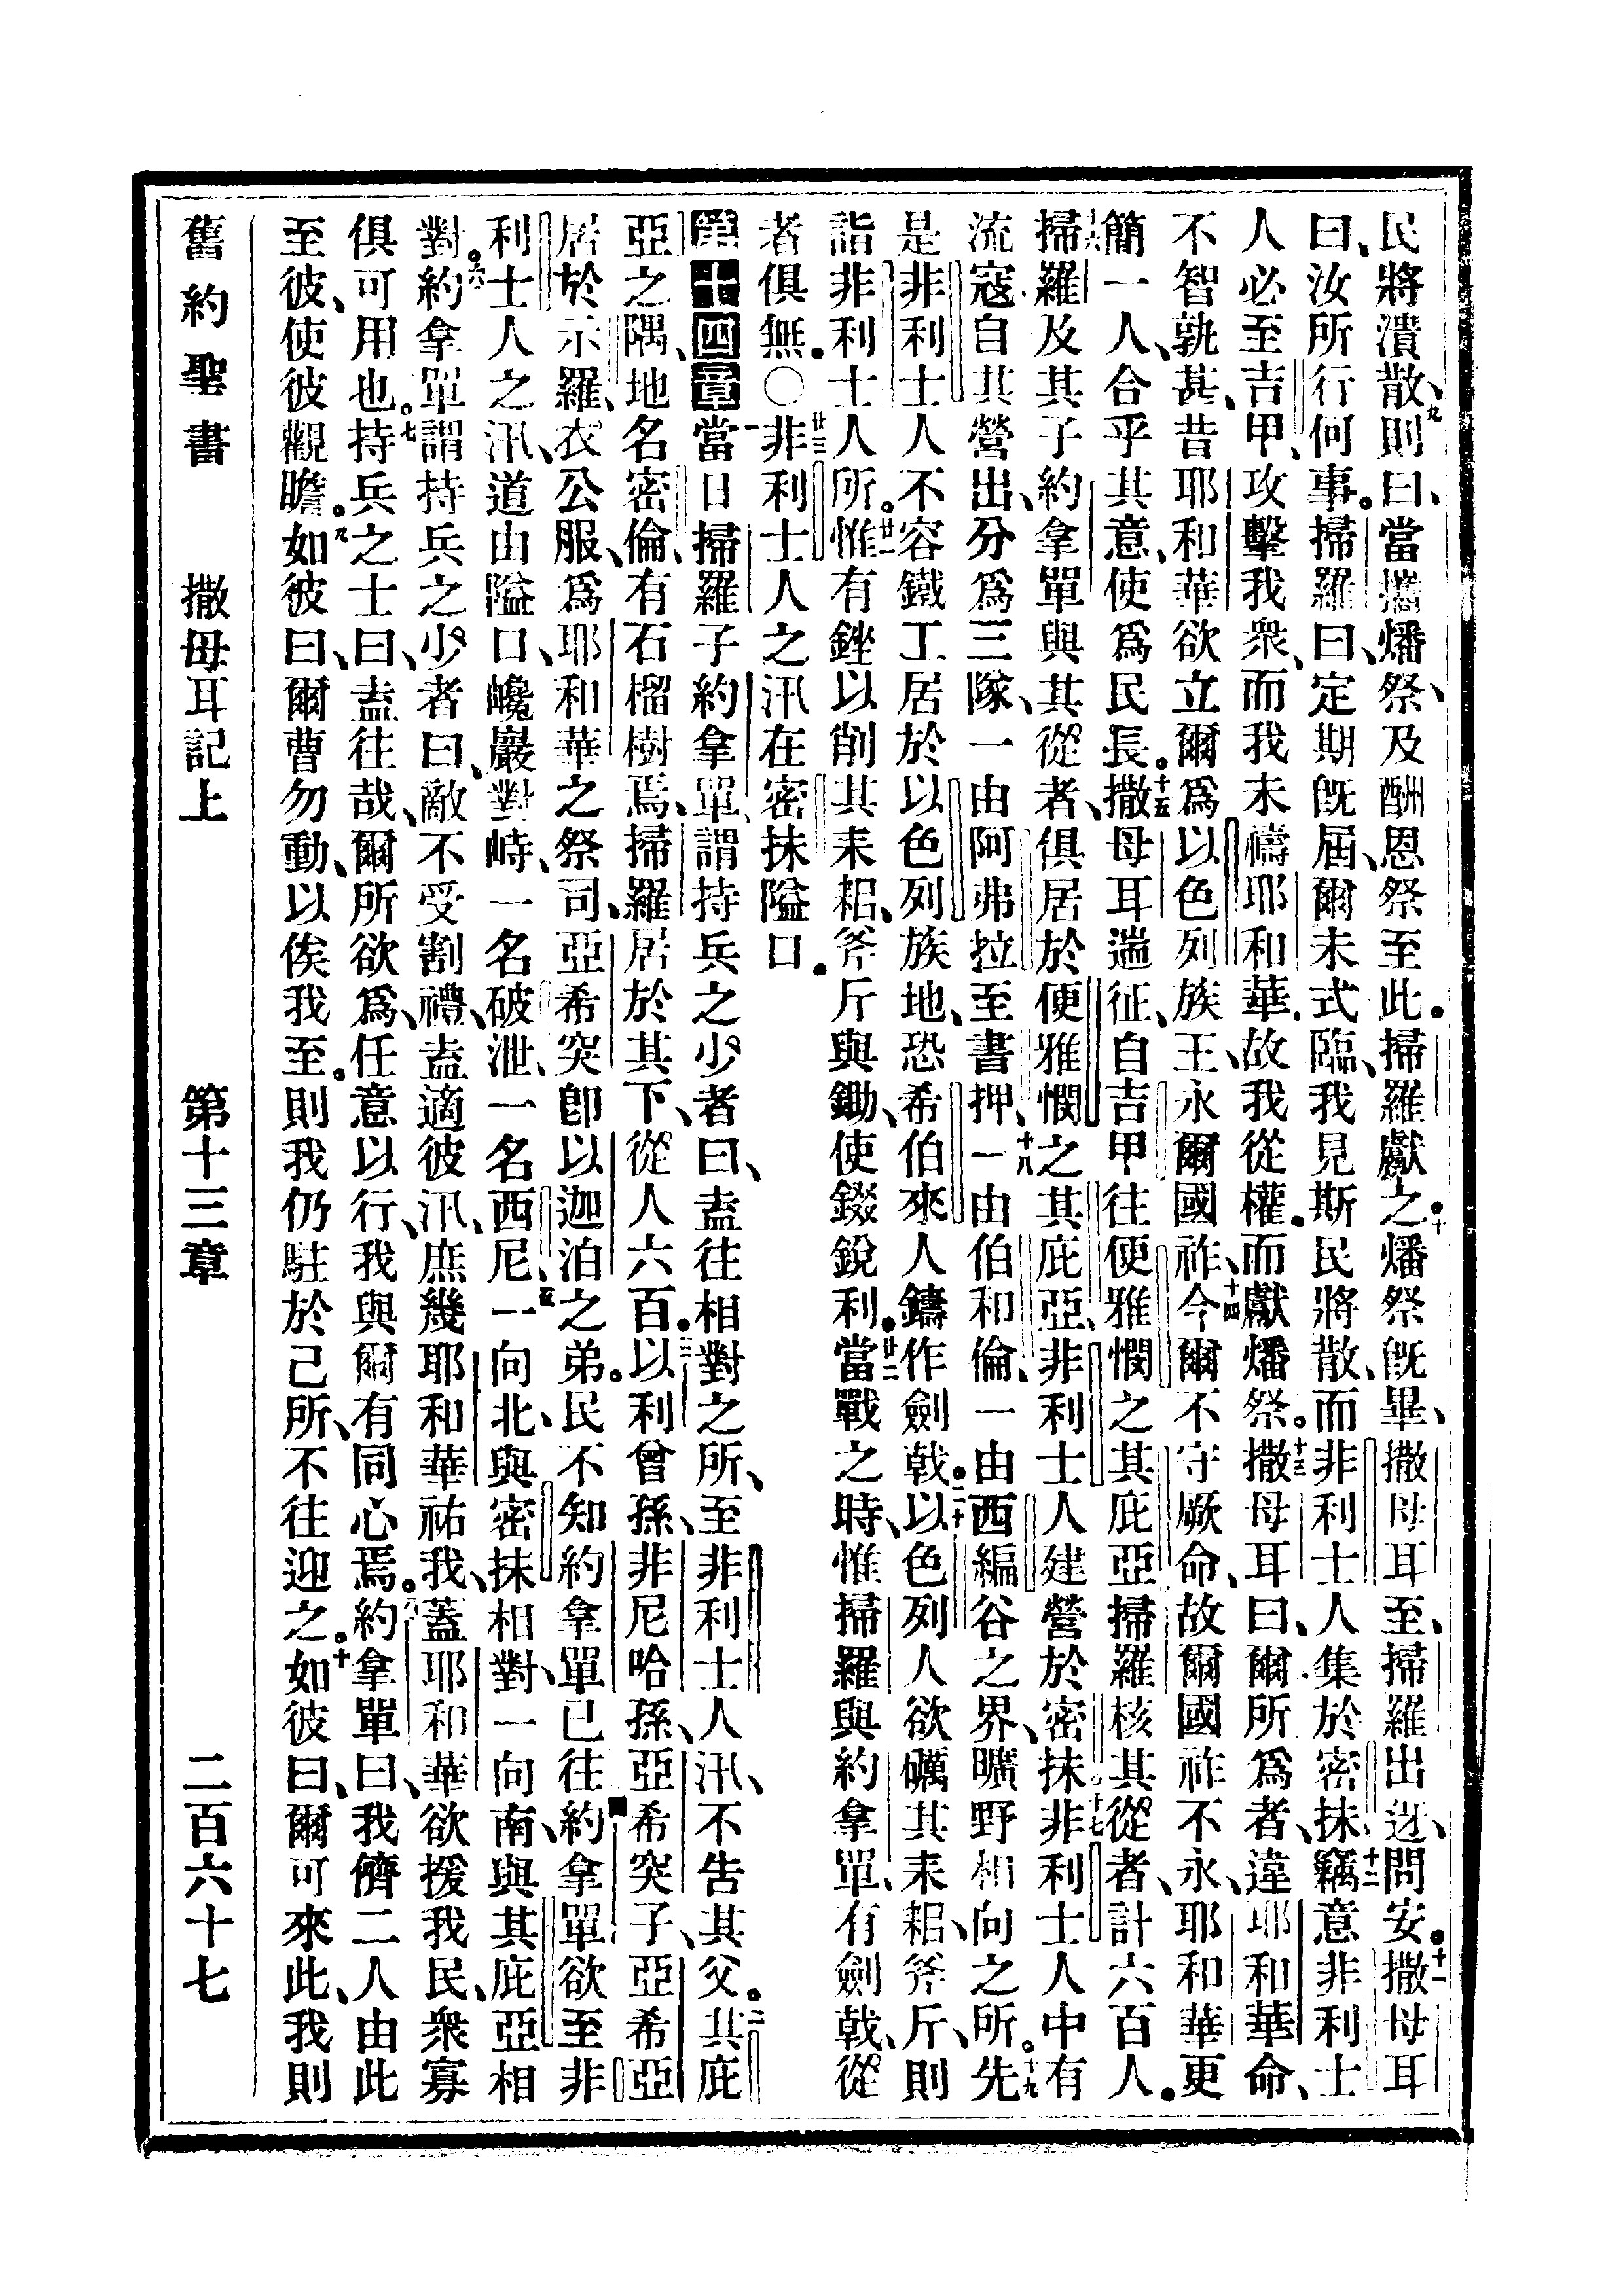 民將潰散、九則曰、當攜燔祭、及酬恩祭至此。掃羅獻之。十燔祭旣畢、撒母耳至、掃羅出迓、問安。十一撒母耳
曰、汝所行何事。掃羅曰、定期旣屆、爾未式臨、我見斯民將散、而非利士人集於密抹、十二竊意非利士
人必至吉甲、攻擊我衆、而我未禱耶和華、故我從權。而獻燔祭。十三撒母耳曰、爾所爲者、違耶和華命、
不智孰甚、昔耶和華欲立爾爲以色列族王、永爾國祚、十四今爾不守厥命、故爾國祚不永、耶和華更
簡一人、合乎其意、使爲民長。十五撒母耳遄征、自吉甲往便雅憫之其庇亞掃羅核其從者、計六百人。
十六掃羅及其子約拿單與其從者、俱居於便雅憫之其庇亞、非利士人建營於密抹。十七非利士人中有
流寇自其營出、分爲三隊、一由阿弗拉至書押、十八一由伯和倫、一由西編谷之界、曠野相向之所。十九先
是非利士人不容鐵工居於以色列族地、恐希伯來人鑄作劍戟。二十以色列人欲礪其耒耜、斧斤、則
詣非利士人所。廿一惟有銼以削其耒耜、斧斤與鋤、使錣銳利。廿二當戰之時、惟掃羅與約拿單、有劍戟、從
者俱無。〇廿三非利士人之汛在密抹隘口。
第十四章一當日掃羅子約拿單、謂持兵之少者曰、盍往相對之所、至非利士人汛、不告其父。二其庇
亞之隅、地名密倫、有石榴樹焉、掃羅居於其下、從人六百。三以利曾孫、非尼哈孫、亞希突子、亞希亞
居於示羅、衣公服、爲耶和華之祭司、亞希突卽以迦泊之弟。民不知約拿單已往、四約拿單欲至非
利士人之汛、道由隘口、巉巖對峙、一名破泄、一名西尼、五一向北、與密抹相對、一向南、與其庇亞相
對。六約拿單謂持兵之少者曰、敵不受割禮、盍適彼汛、庶幾耶和華祐我、蓋耶和華欲援我民、衆寡
俱可用也。七持兵之士曰、盍往哉、爾所欲爲、任意以行、我與爾有同心焉。八約拿單曰、我儕二人由此
至彼、使彼觀瞻。九如彼曰、爾曹勿動、以俟我至。則我仍駐於己所、不往迎之。十如彼曰、爾可來此、我則
舊約聖書 撒母耳記上 第十三章 二百六十七